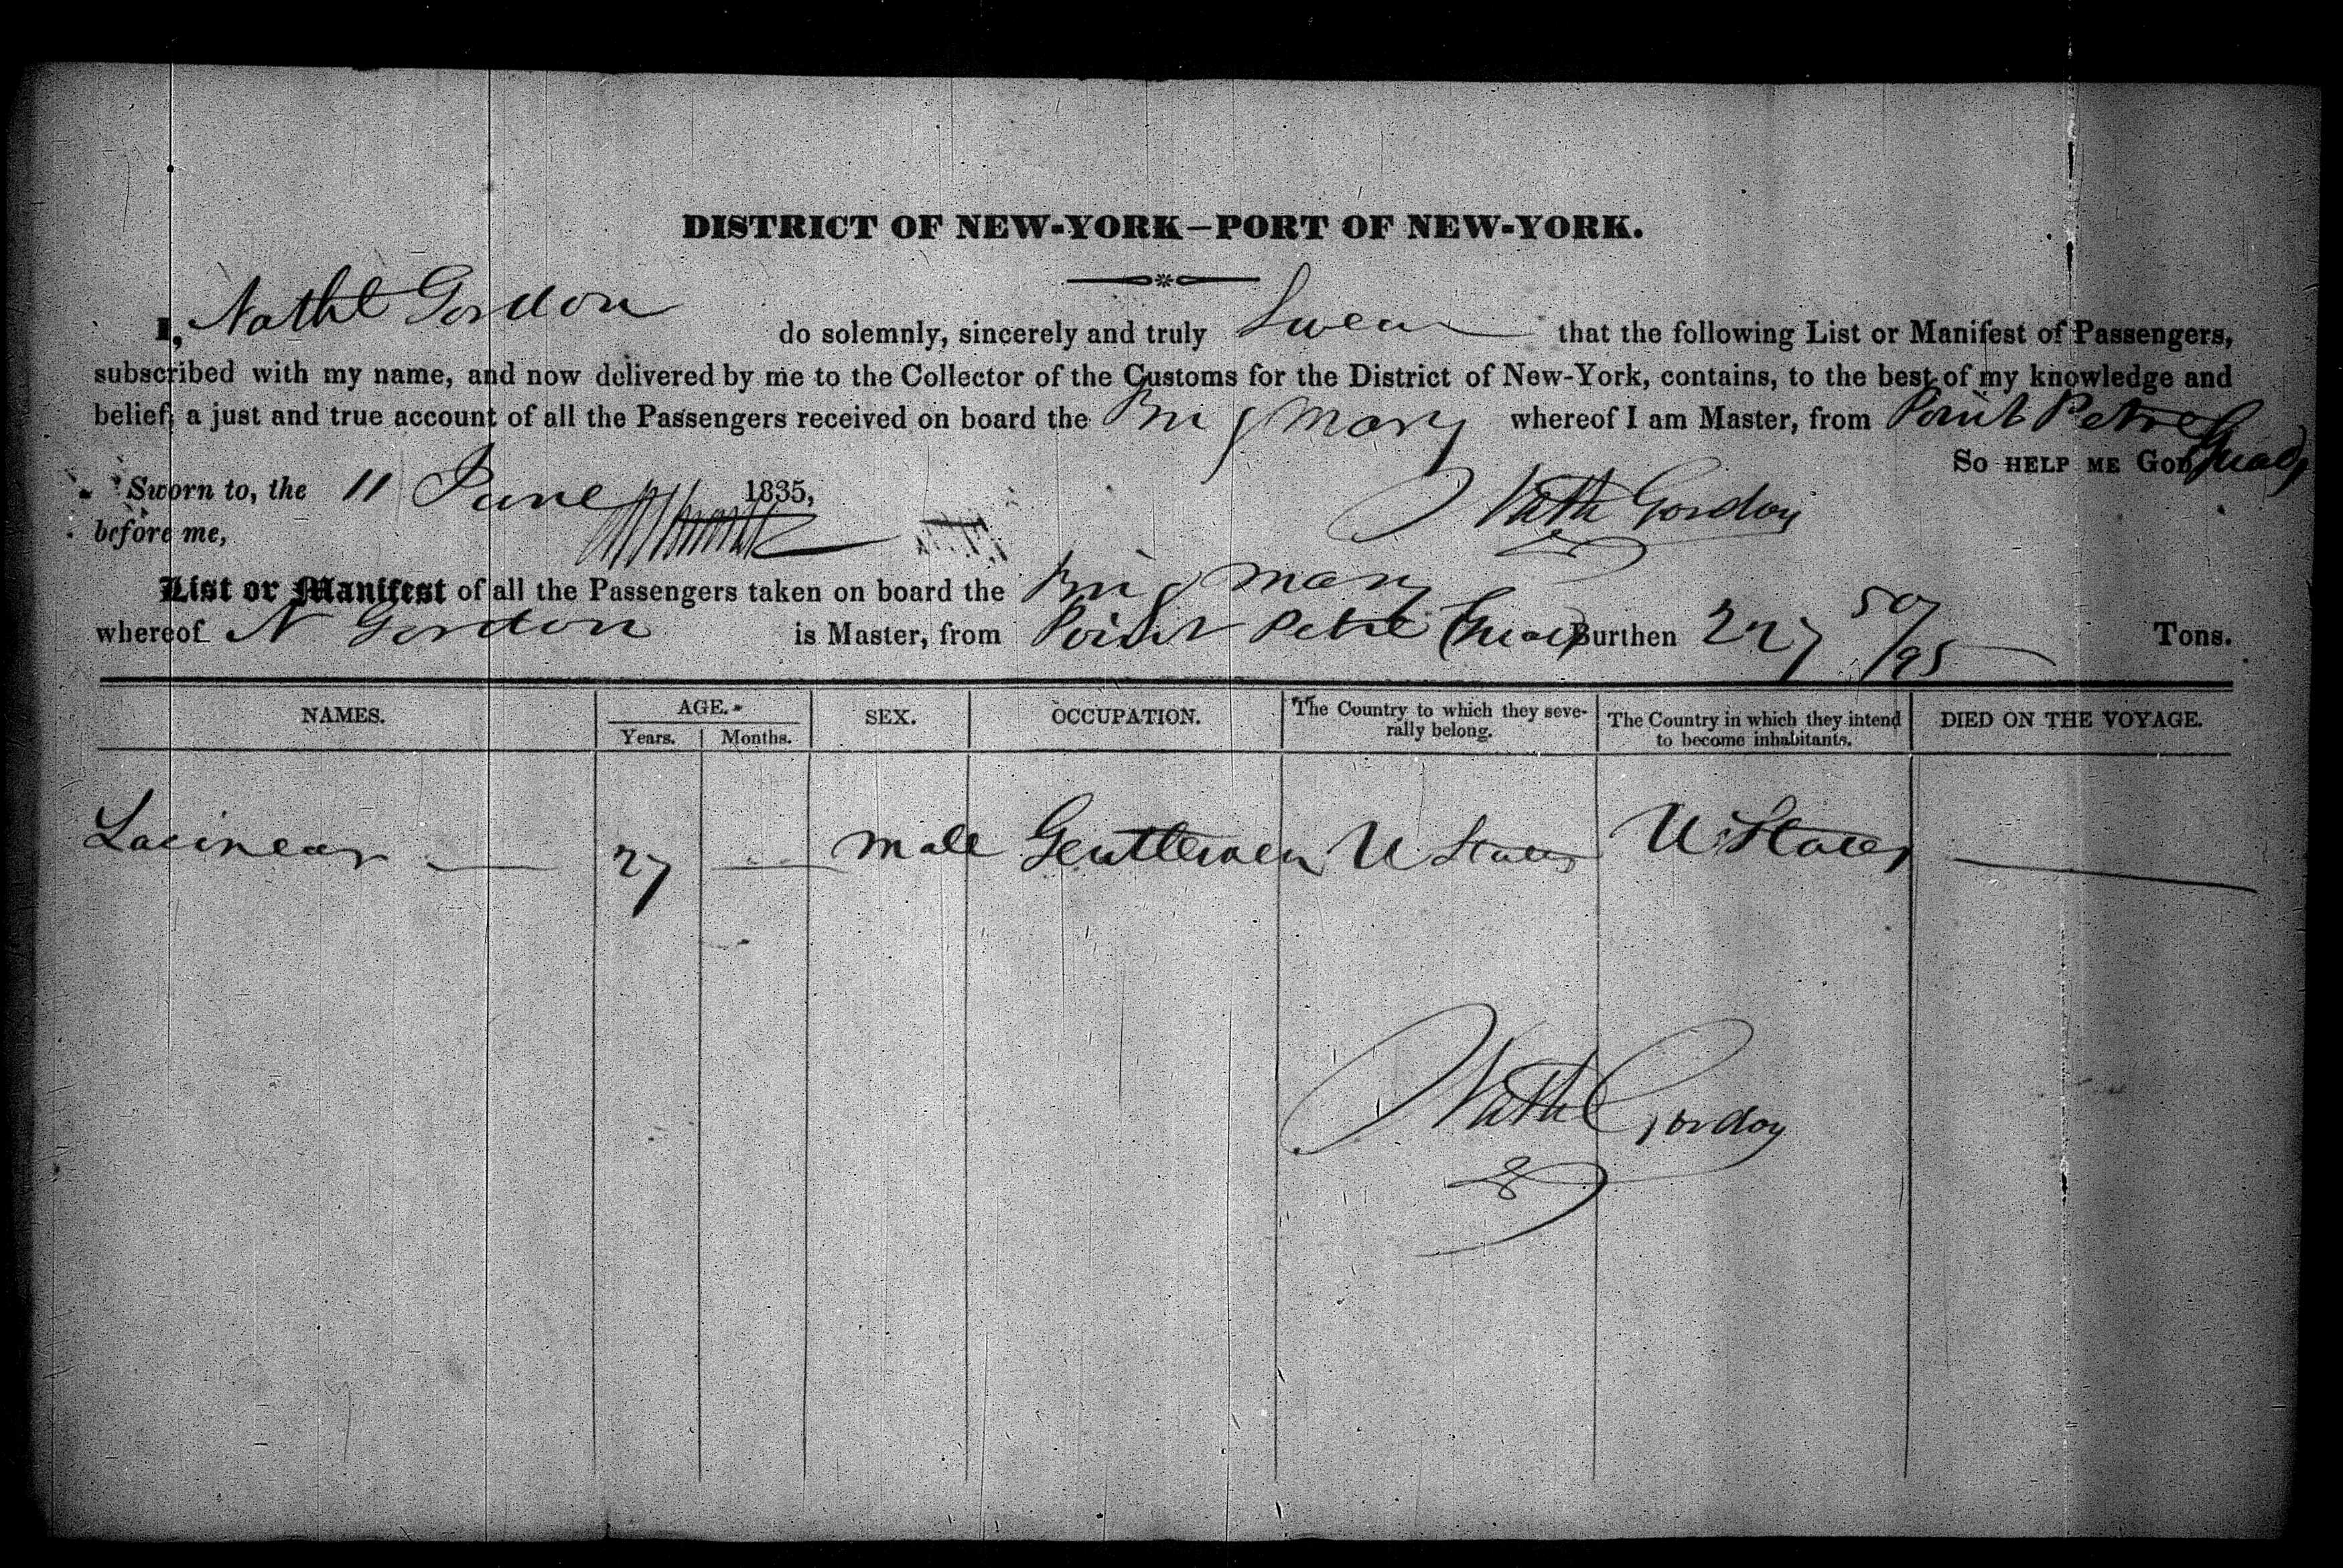 DISTRICT OF NEW-YORK–PORT OF NEW-YORK.
I, Nathl Gordon do solemnly, sincerely and truly Swear that the following List or Manifest of Passengers,
subscribed with my name, and now delivered by me to the Collector of the Customs for the District of New-York, contains, to the best of my knowledge and
belief, a just and true account of all the Passengers received on board the Brig Mary whereof I am Master, from Point Petre Guad
So HELP ME GOD.
Sworn to, the 11 June 1835,
before me,
Nathl Gordon
List or Manifest of all the Passengers taken on board the Brig Mary
whereof N Gordon is Master, from Point Petre (Guad) Burthen 227 50/95 Tons.
NAMES. AGE. Years. Months. SEX. OCCUPATION. The Country to which they severally belong. The Country in which they intend to become inhabitants. DIED ON THE VOYAGE.
27 male Gentleman U States U States
Nathl Gordon